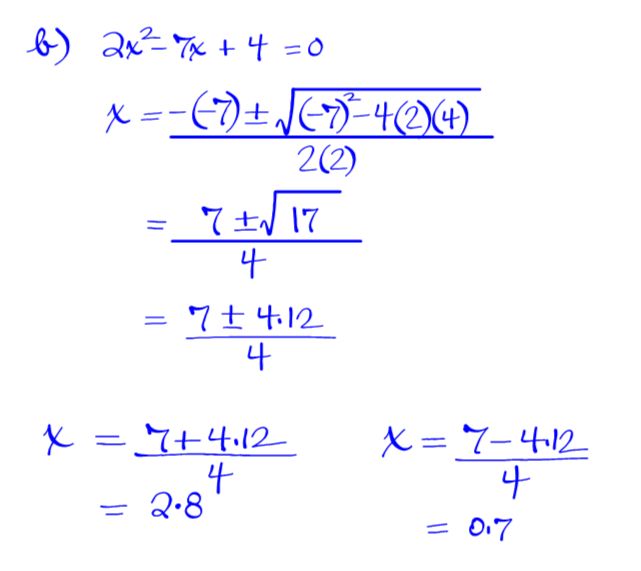 b) 2x² - 7x + 4 = 0
x = -(-7) ± √(-7)² - 4(2)(4)
2(2)
= 7 ± √17
4
= 7 ± 4.12
4
x = 7 + 4.12 x = 7 - 4.12
4 4
= 2.8 = 0.7